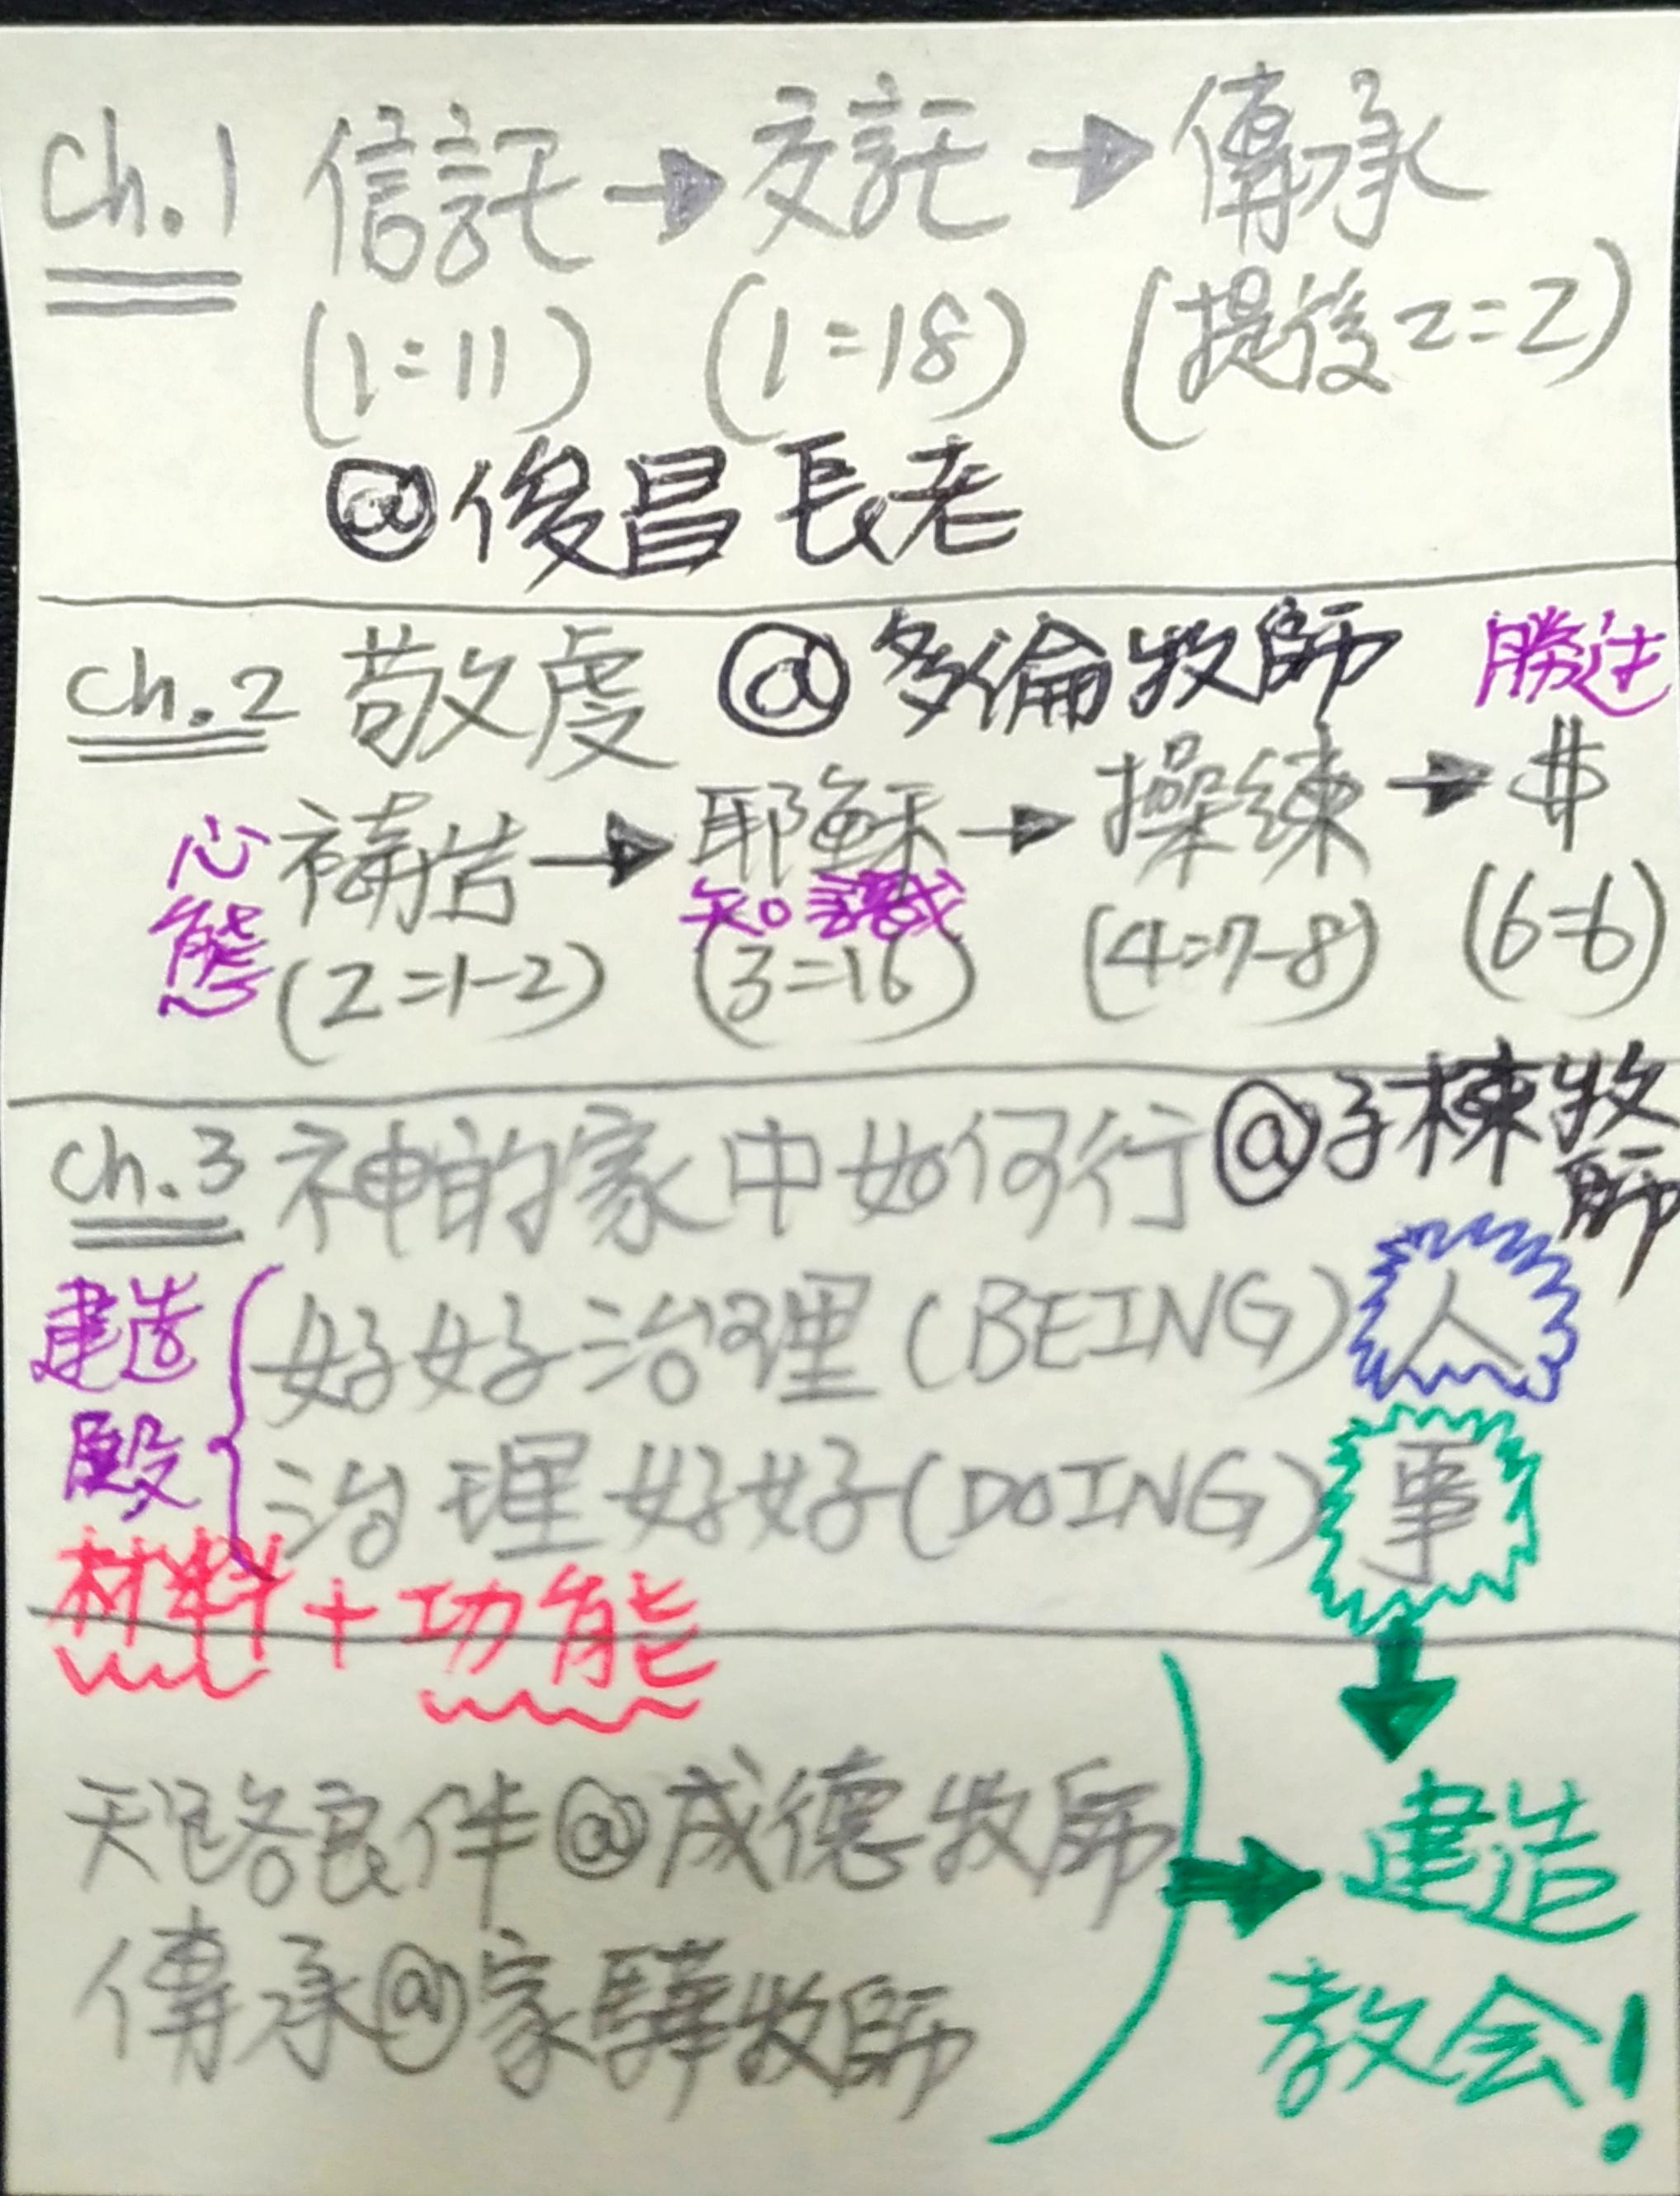 Ch.1 信託→交託→傳承
(1=11) (1=18) (提後2=2)
@俊昌長老
Ch.2 敬虔 @多倫牧師 勝过
心態 禱告→耶穌→操練→$
知識
(2=1-2) (3=16) (4=7-8) (6=6)
Ch.3 神的家中如何行@子棟牧師
建造殿
好好治理(BEING)人
治理好好(DOING)事
材料+功能
天路良伴@成德牧師
傳承@家驊牧師
→建造
教会!